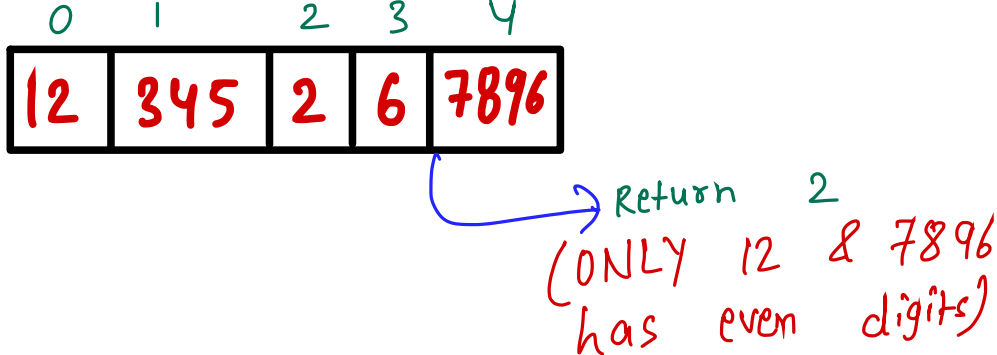 0 1 2 3 4
12 345 2 6 7896
Return 2
(ONLY 12 & 7896
has even digits)